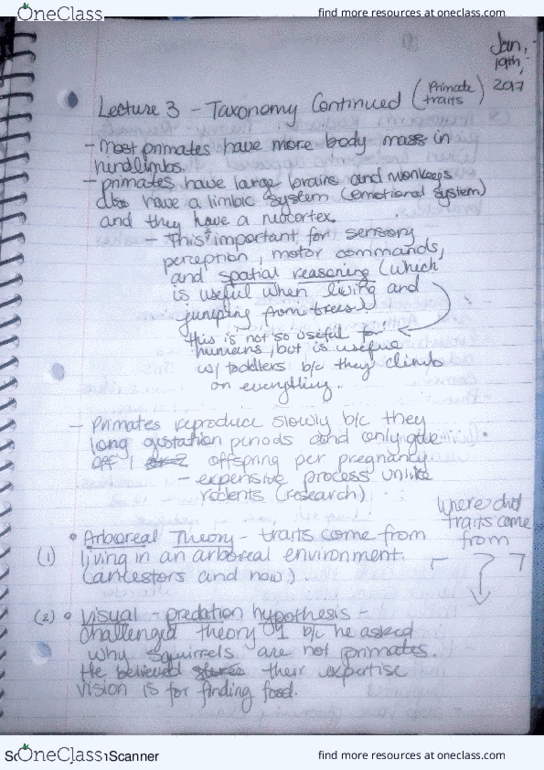 OneClass
find more resources at oneclass.com
Jan,
19th,
2017
Lecture 3 - Taxonomy Continued (Primate traits)
- Most primates have more body mass in
hindlimbs.
- primates have large brains and monkeys
also have a limbic system (emotional system)
and they have a neocortex.
- This important for sensory
perception, motor commands,
and spatial reasoning (which
is useful when living and
jumping from trees)
this is not so useful for
humans, but is useful
w/ toddlers b/c they climb
on everything.
- Primates reproduce slowly b/c they
long gestation periods and only give
off 1 offspring per pregnancy
- expensive process unlike
rodents (research)
where did
traits come
from
?
• Arboreal Theory - traits come from
(1) living in an arboreal environment.
(ancestors and now).
(2) • Visual - predation hypothesis -
challenged theory 01 b/c he asked
why squirrels are not primates.
He believed their expertise
vision is for finding food.
OneClass
Scanner
find more resources at oneclass.com